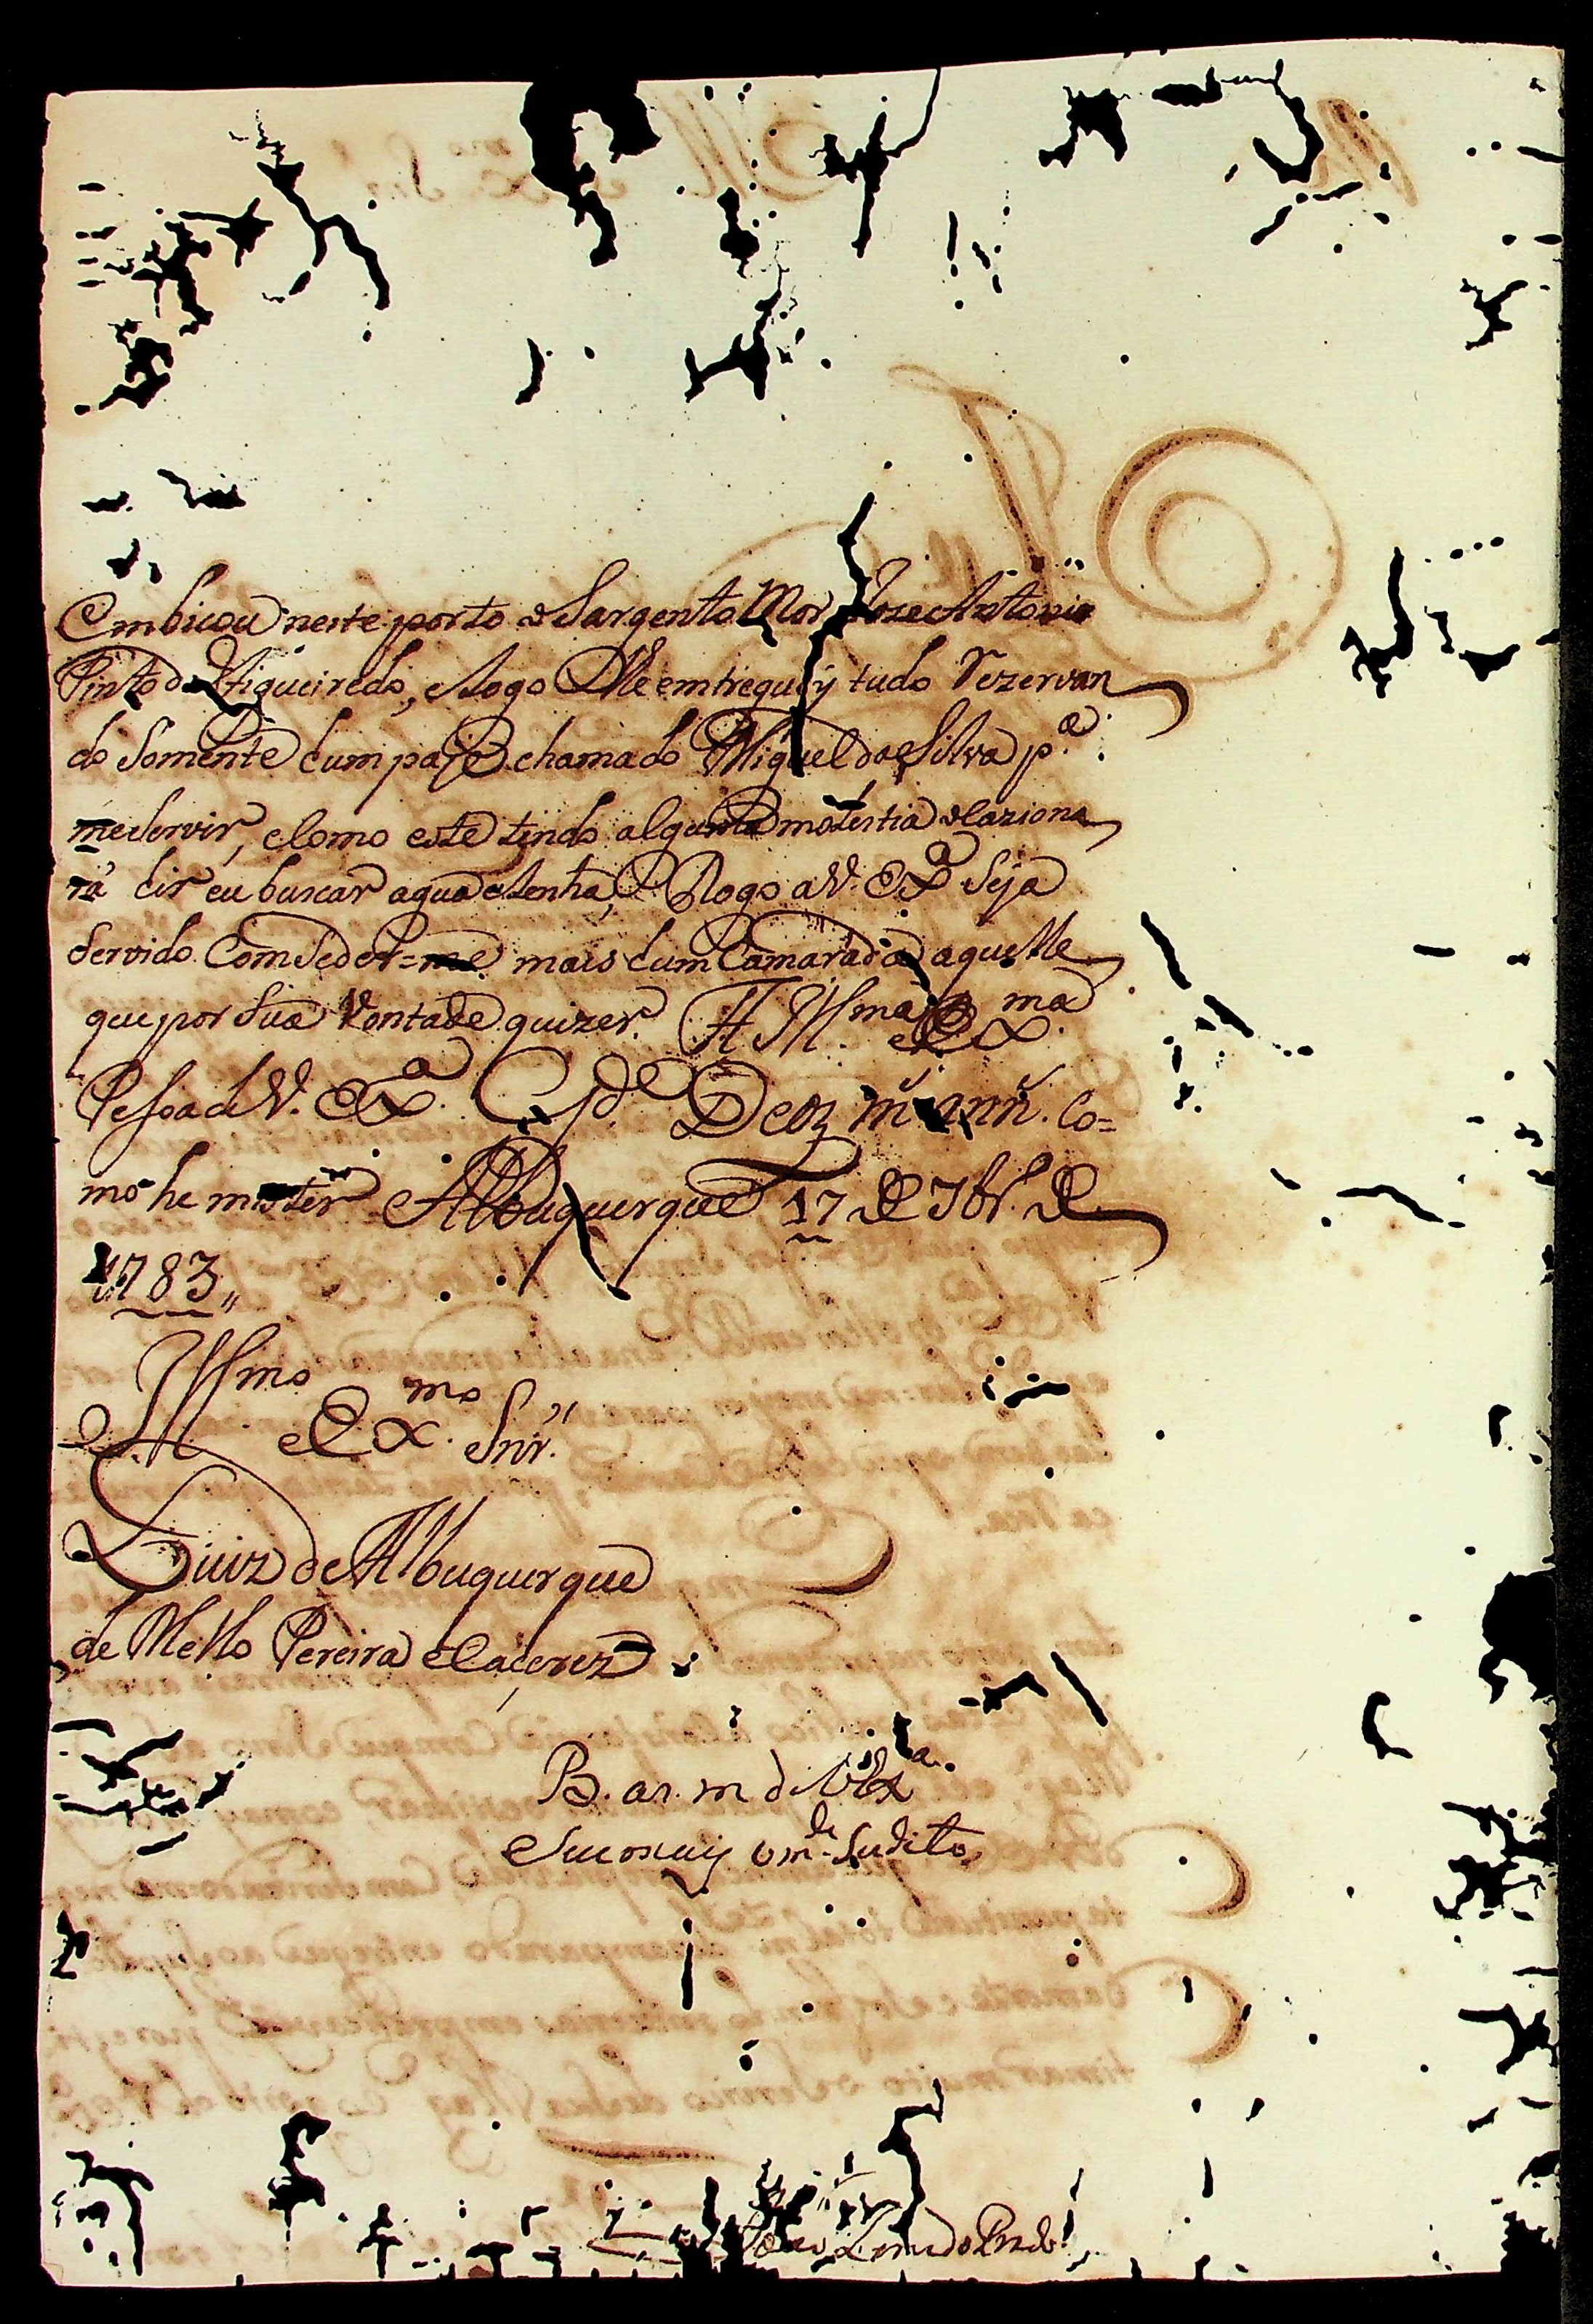 Embicou neste porto o Sargento Mor Joze Antonio
Pinto de Figueiredo, e logo lhe emtreguey tudo Rezervan
do Somente hum paje chamado Miguel da Silva p.ª
me servir, e como este tendo alguma molestia ocaziona
rá hir eu buscar agua e lenha, Rogo a V. Ex.ª Seja
Servido ComSeder=me mais hum Camarada aquelle
que por Sua Vontade quizer. A Ill.ma e Ex.ma
Pessoa de V. Ex.ª G.de Deoz m. ann. co=
mo he mister Albuquerque 17 de 7br.º de
1783,,
Ill.mo e Ex.mo Snr.
Luiz de Albuquerque
de Mello Pereira e Caceres
B. as. m de V Ex.ª
o m.de Sudito
Leme do Prado